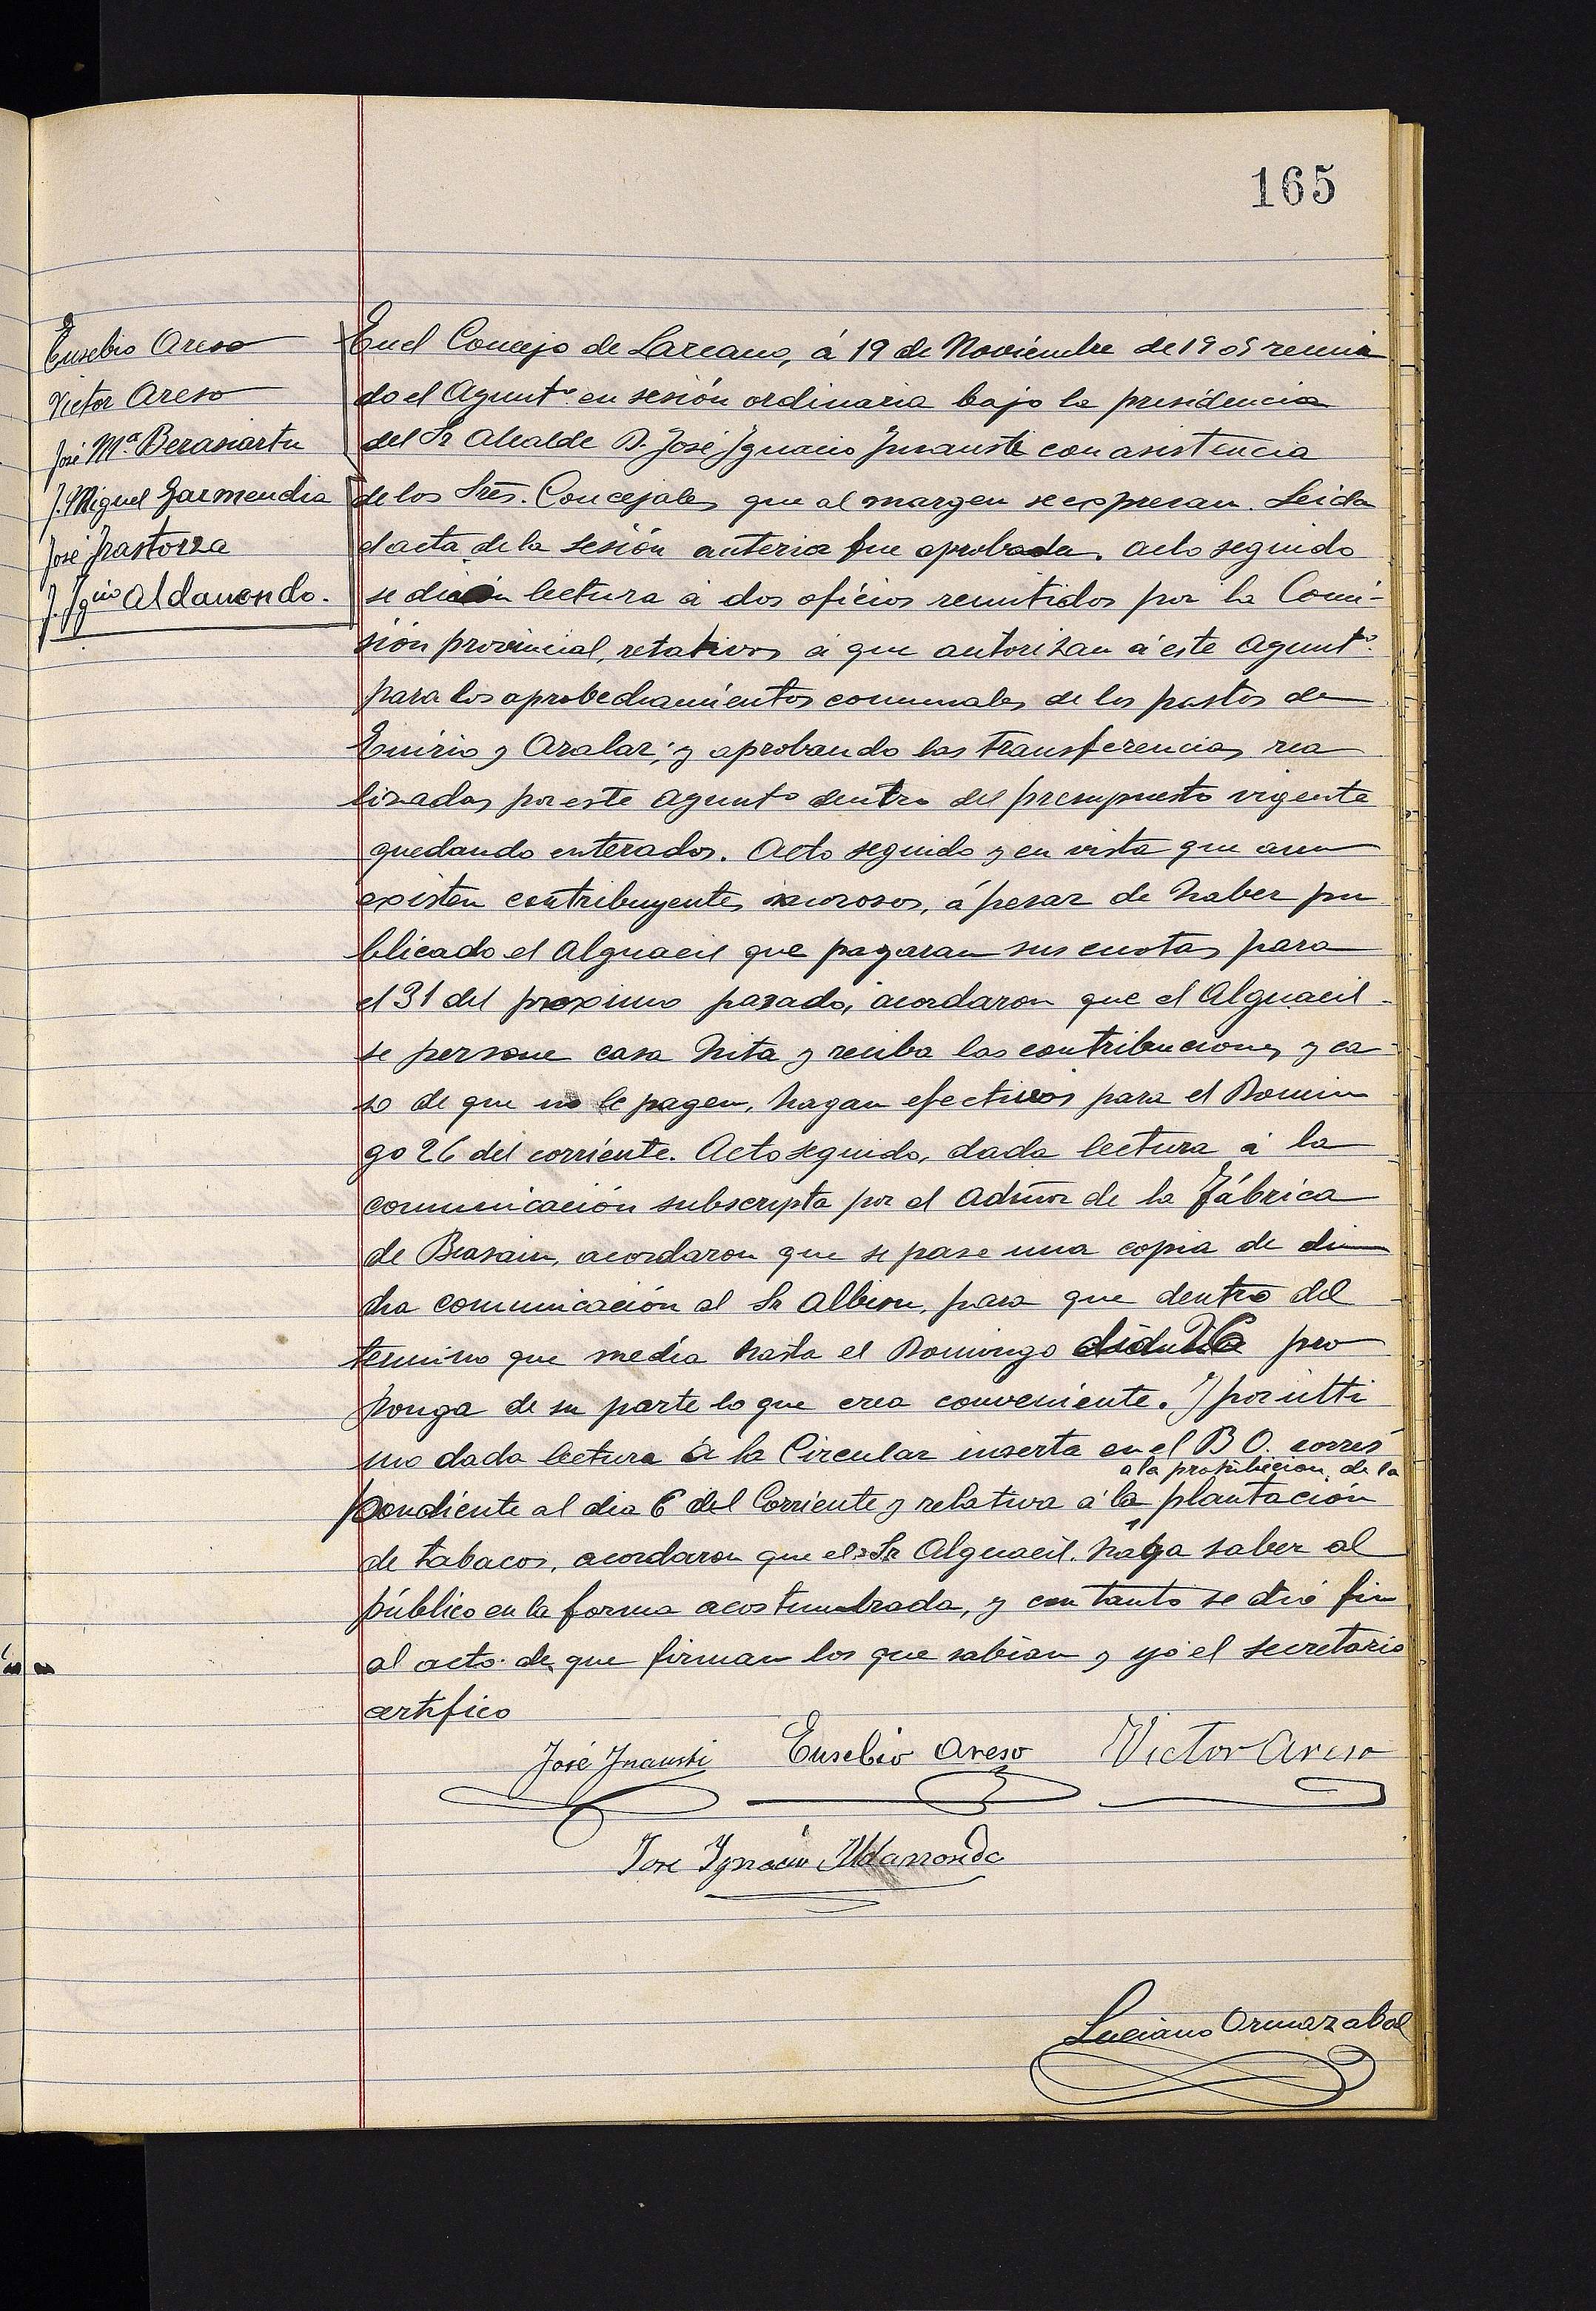 165
Eusebio Areso
Victor Areso
José Mª. Berasiartu
J. Miguel Garmendia
José Irastorza
J. Ygnio Aldanondo.
En el Concejo de Lazcano, á 19 de Noviembre de 1905 reuni
do el Ayuntº en sesión ordinaria bajo la presidencia
del Sr Alcalde D. José Ygnacio Ynausti con asistencia
de los Srēs. Concejales que al margen se expresan. Leida
el acta de la sesión anterior fue aprobada. Acto seguido
se dieron lectura á dos oficios remitidos por la Comi-
sión provincial, relativos á que autorizan á este Ayuntº
para los aprobechamientos comunales de los pastos de
Enirio y Aralar; y aprobando las transferencias rea
lizadas por este Ayuntº dentro del presupuesto vigente
quedando enterados. Acto seguido y en vista que aun
existen contribuyentes morosos, á pesar de haber pu
blicado el Alguacil que pagaran sus cuotas para
el 31 del proximo pasado, acordaron que el Alguacil
se persone casa hita y reciba las contribuciones y ca
so de que no le pagen, hagan efectivos para el Domin
go 26 del corriente. Acto seguido, dada lectura á la
comunicación subscripta por el Admōr de la Fábrica
de Beasain, acordaron que se pase una copia de di
cha comunicación al Sr Albisu, para que dentro del
termino que media hasta el Domingo dia 26 pro
ponga de su parte lo que crea conveniente. Y por ulti
mo dada lectura á la Circular inserta en el B O. corres
a la prohibicion de la
pondiente al dia 6 del Corriente y relativa á la plantación
de tabacos, acordaron que el Sr Alguacil haga saber al
público en la forma acostumbrada, y con tanto se dió fin
al acto de que firman los que sabian y yo el secretario
certifico
José Ynausti Eusebio Areso Victor Areso
Jose Ygnacio Aldanondo
Luciano Ormazabal